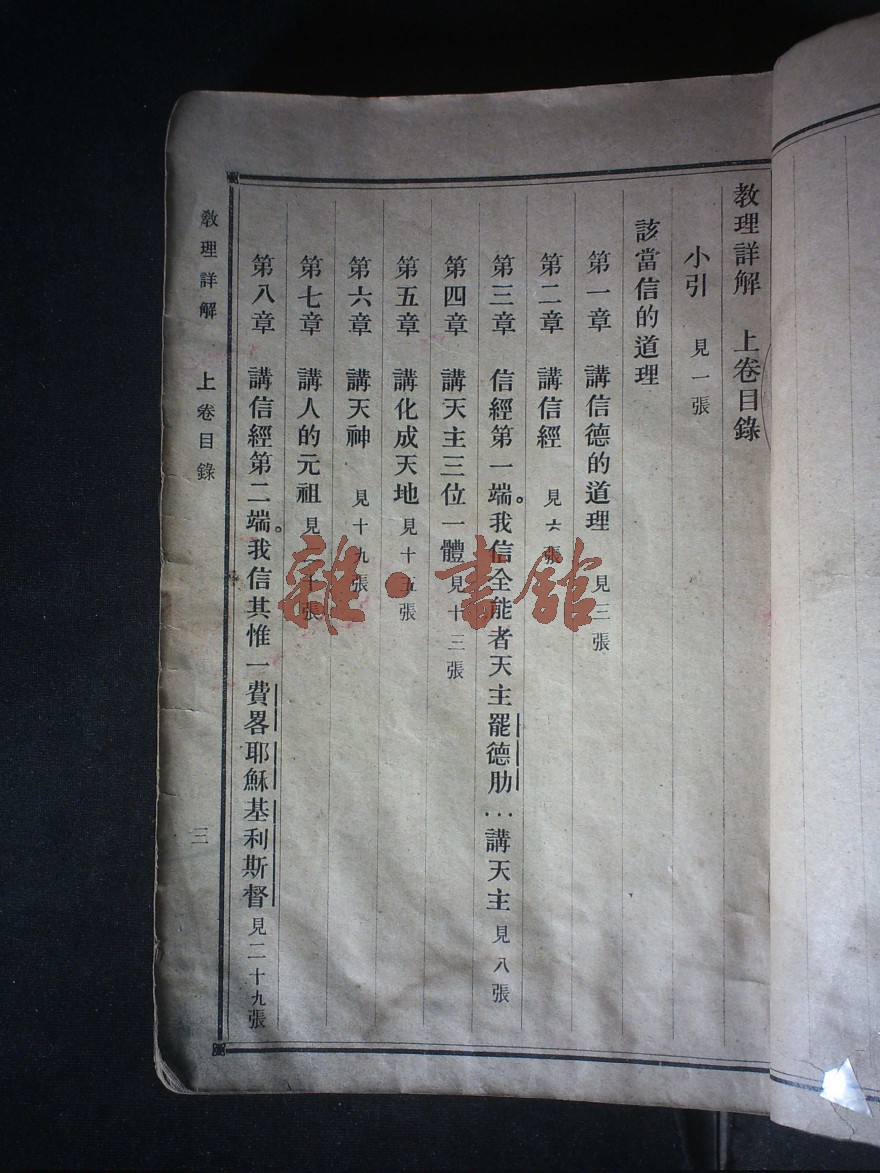 教理詳解 上卷目錄
小引 見一張
該當信的道理
第一章 講信德的道理 見三張
第二章 講信經 見六張
第三章 信經第一端。我信全能者天主罷德肋…講天主 見八張
第四章 講天主三位一體 見十三張
第五章 講化成天地 見十五張
第六章 講天神 見十九張
第七章 講人的元祖 見十張
第八章 講信經第二端。我信其惟一費畧耶穌基利斯督 見二十九張
教理詳解 上卷目錄 三
雜·書館